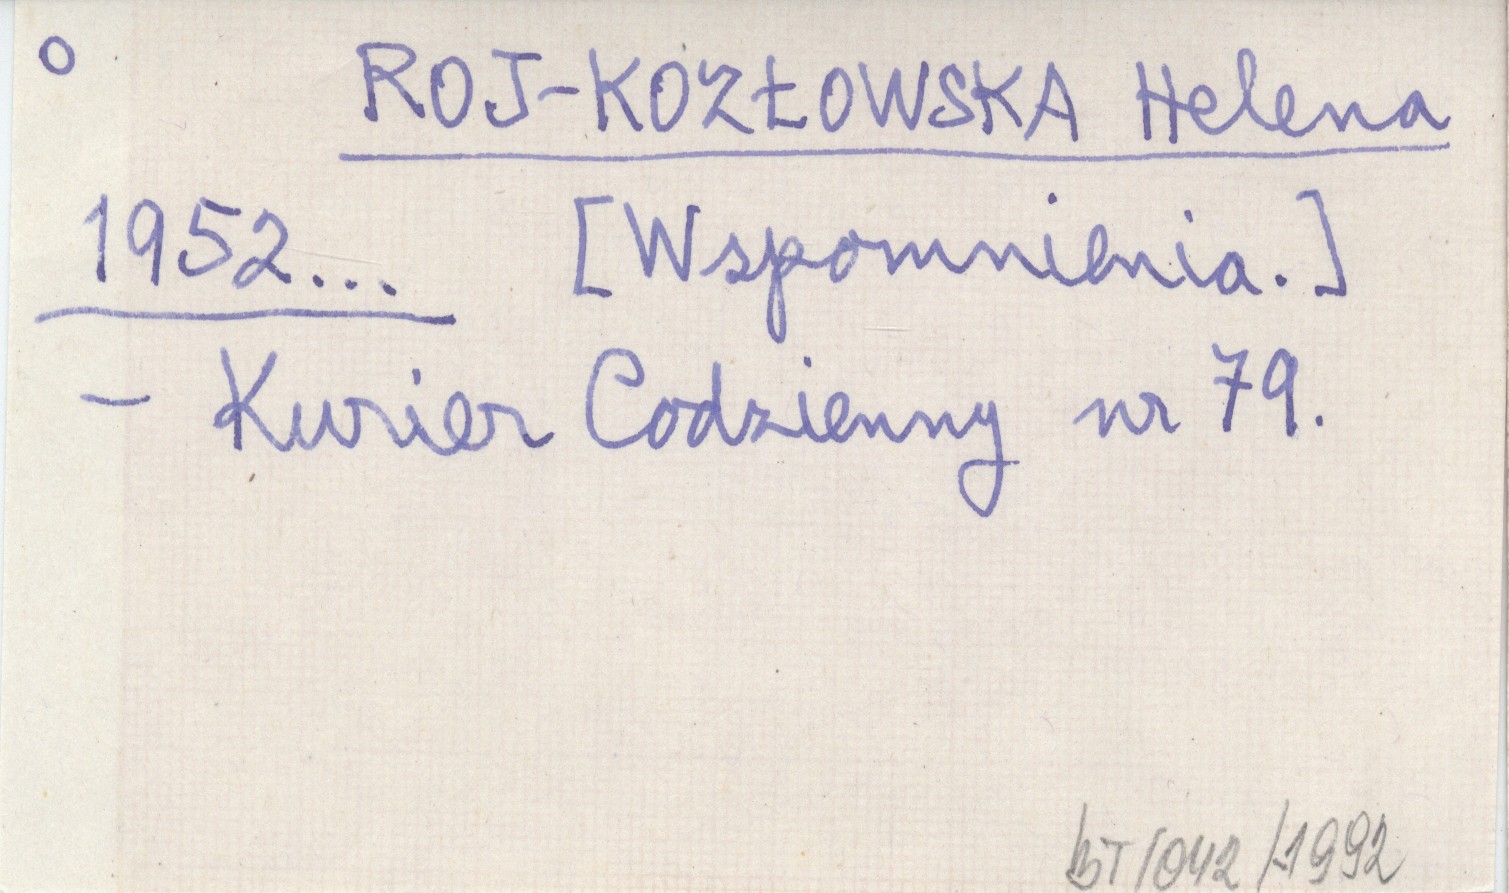 o ROJ-KOZŁOWSKA Helena
1952... [Wspomnienia.]
- Kurier Codzienny nr 79.
BT/042/1992